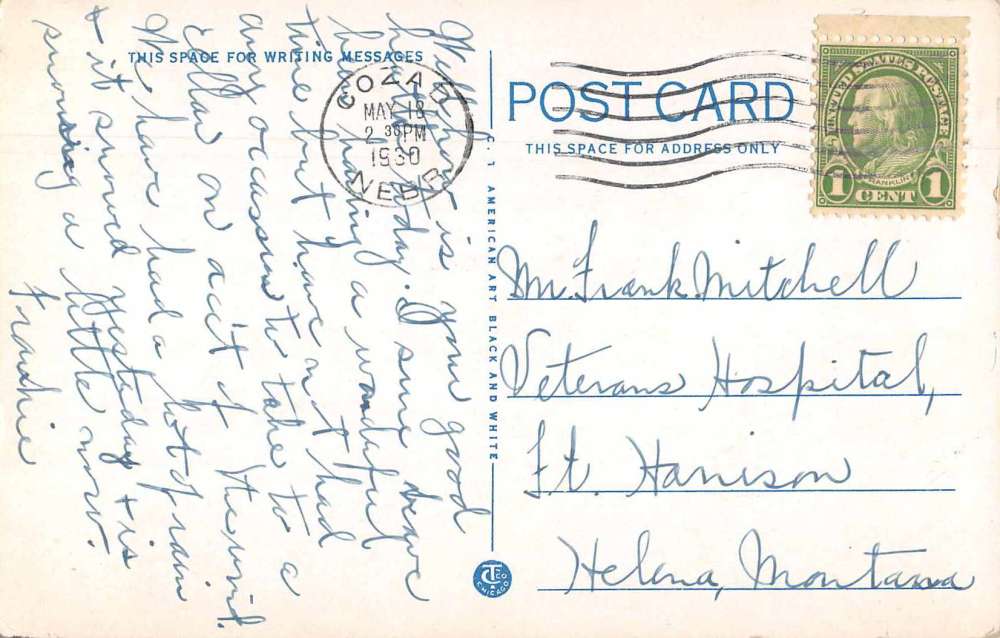 THIS SPACE FOR WRITING MESSAGES
Well how is your good
health today. I sure have
been having a wonderful
time but have not had
any occassion to take to a
cellar on acc't of the wind.
We have had a lot of rain
& it snowed yesterday & is
snowing a little now.
Frankie
COZAD
MAY 18
2 30 PM
1930
NEBR.
C. T. AMERICAN ART BLACK AND WHITE
CHICAGO
POST CARD
THIS SPACE FOR ADDRESS ONLY
UNITED STATES POSTAGE
FRANKLIN
1 CENT 1
Mr. Frank Mitchell
Veterans Hospital,
Ft. Harrison
Helena, Montana